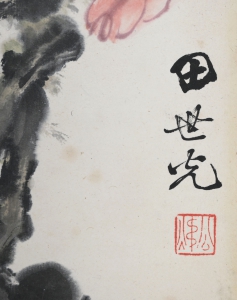 田世光